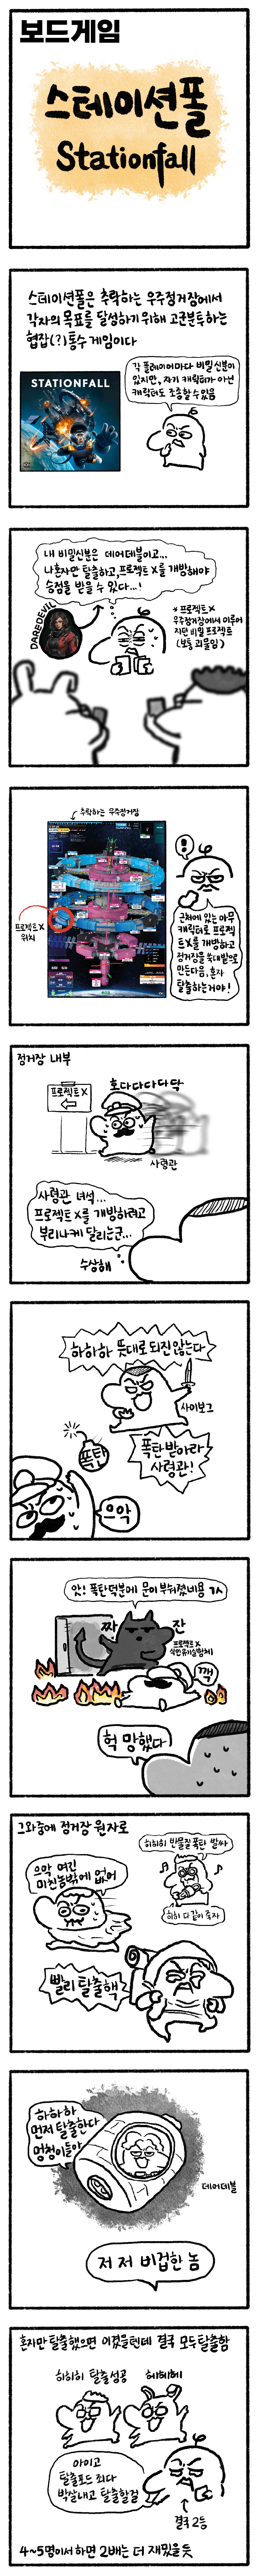 보드게임
스테이션폴
Stationfall
스테이션폴은 추락하는 우주정거장에서
각자의 목표를 달성하기 위해 고군분투하는
협잡(?)통수 게임이다
STATIONFALL
각 플레이어마다 비밀신분이
있지만, 자기 캐릭터가 아닌
캐릭터도 조종할 수 있음
내 비밀신분은 데어데블이고...
나 혼자만 탈출하고, 프로젝트X를 개방해야
승점을 받을 수 있다...!
DAREDEVIL
* 프로젝트X
우주정거장에서 이루어
지던 비밀 프로젝트
(보통 괴물임)
추락하는 우주정거장
프로젝트X
위치
근처에 있는 아무
캐릭터로 프로젝
트X를 개방하고
정거장을 쑥대밭으로
만든다음, 혼자
탈출하는거야!
정거장 내부
프로젝트X
호다다다다닥
사령관
사령관 녀석...
프로젝트X를 개방하려고
부리나케 달리는군...
수상해
하하하 뜻대로 되진 않는다
사이보그
폭탄
폭탄받아라
사령관!
으악
앗! 폭탄덕분에 문이 부숴졌네용 ㄱㅅ
짜 잔
프로젝트X
식인유사실험체
꽥
헉 망했다
그와중에 정거장 원자로
으악 여긴
미친놈밖에 없어
히히히 반물질 폭탄 발싸
히히 다같이 죽자
빨리 탈출해
하하하
먼저 탈출한다
멍청이들아
데어데블
저 저 비겁한 놈
혼자만 탈출했으면 이겼을텐데 결국 모두탈출함
히히히 탈출성공
헤헤헤
아이고
탈출포드 죄다
박살내고 탈출할걸
결국 2등
4~5명이서 하면 2배는 더 재밌을 듯